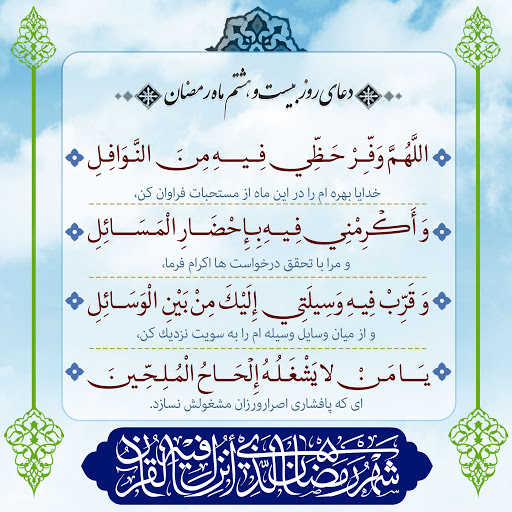 دعای روز بیست و هشتم ماه رمضان
اللَّهُمَّ وَفِّرْ حَظِّي فِيهِ مِنَ النَّوَافِلِ
خدایا بهره ام را در این ماه از مستحبات فراوان کن،
وَ أَكْرِمْنِي فِيهِ بِإِحْضَارِ الْمَسَائِلِ
و مرا با تحقق درخواست ها اکرام فرما،
وَ قَرِّبْ فِيهِ وَسِيلَتِي إِلَيْكَ مِنْ بَيْنِ الْوَسَائِلِ
و از میان وسایل وسیله ام را به سویت نزدیك کن،
يَا مَنْ لا يَشْغَلُهُ إِلْحَاحُ الْمُلِحِّينَ
ای که پافشاری اصرارورزان مشغولش نسازد.
شَهْرُ رَمَضَانَ الَّذِي أُنْزِلَ فِيهِ الْقُرْآنُ